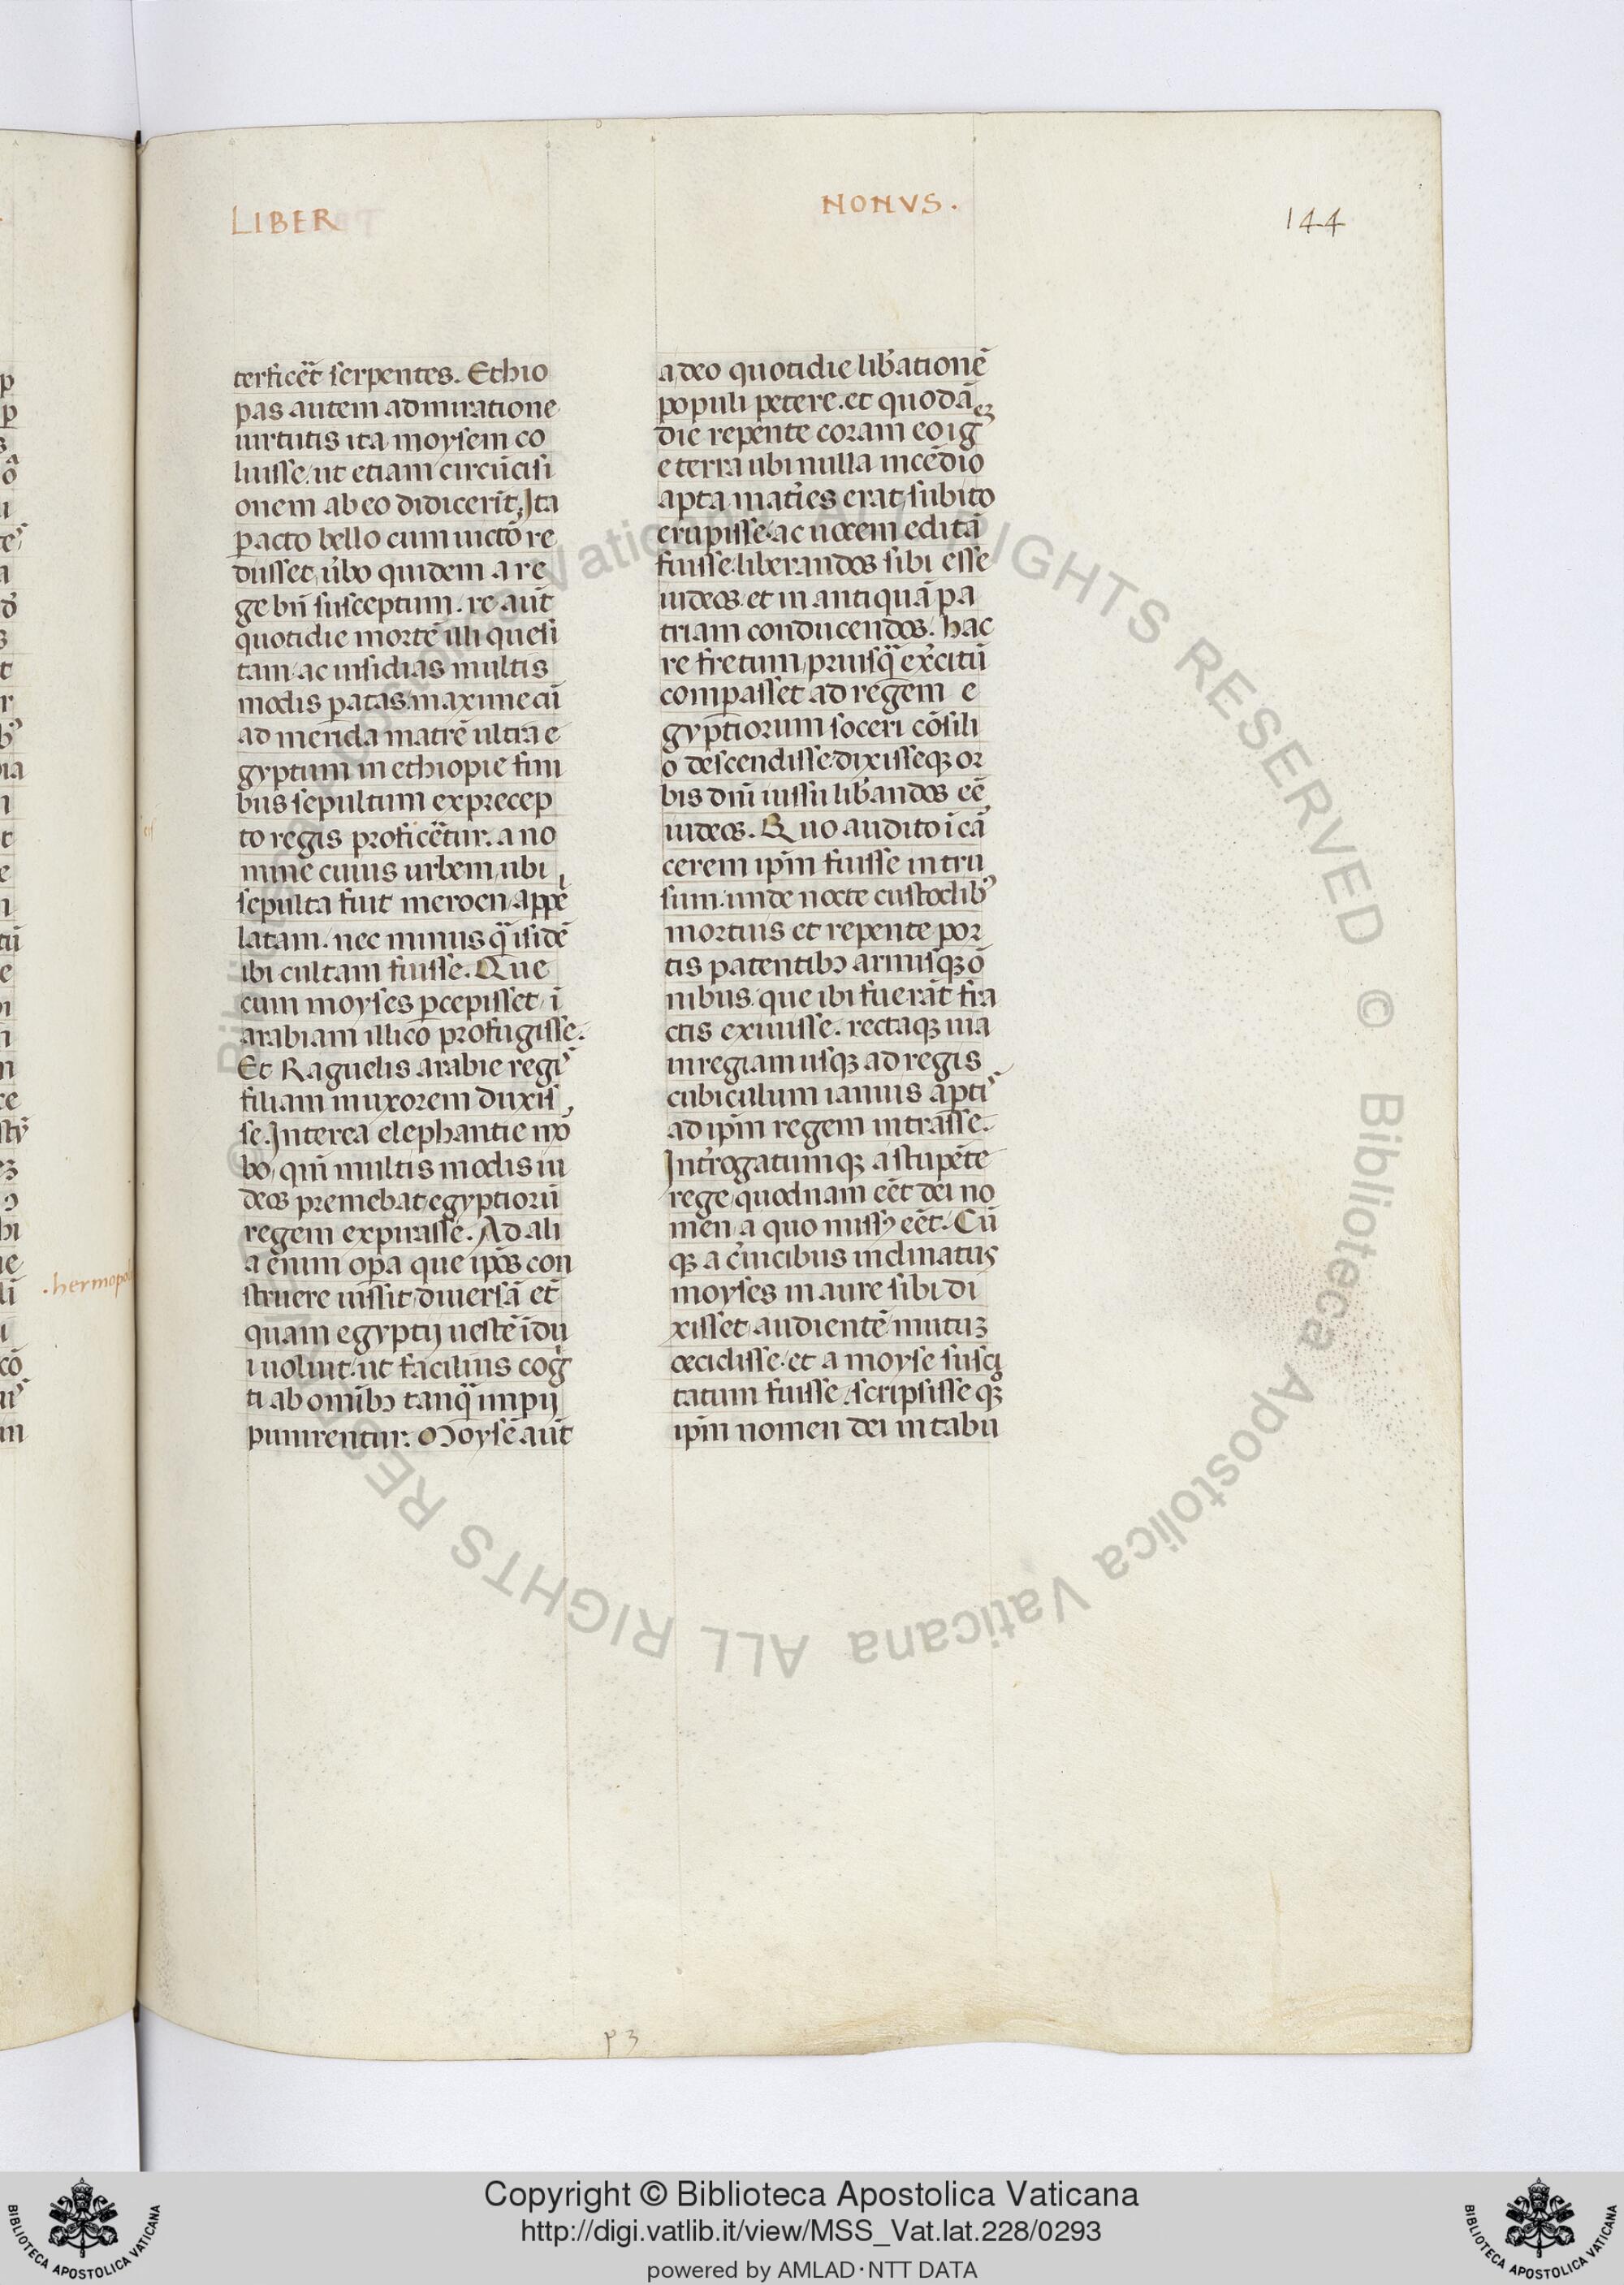 LIBER
NONVS.
144
terficēt serpentes. Ethio
pas autem admiratione
uirtutis ita moysem co
luisse. ut etiam circūcisi
onem ab eo didicerīt. Ita
pacto bello cum uictō re
dusset, ūbo quidem a re
ge bn̄ susceptum. re aūt
quotidie mortē illi quesi
tam. ac insidias multis
modis patas. maxime cū
ad merida matrē ultra e
gyptum in ethiopie fini
bus sepultum ex precep
to regis proficēt̄ur. a no
mine cuius urbem, ubi
sepulta fuit meroen, appel
latam. nec minus q̄ isidē
ibi cultam fuisse. Que
cum moyses p̄cepisset, ī
arabiam illico profugisse.
Et Raguelis arabie regis
filiam in uxorem duxis
se. Interea elephantie mō
bo, qui multis modis iu
deos premebat, egyptiorū
regem expirasse. Ad ali
a enim opa que ip̄os con
struere iussit, diuersā et̄
quam egyptij uestē īdu
i uoluit. ut facilius coḡ
ti ab omībꝯ tanq̄ impij
punirentur. Moysē aūt
a deo quotidie lib̄ationē
populi petere. et quodā
die repente coram eo ig
e terra ubi nulla incēdio
apta mat̄ies erat, subito
erupisse. ac uocem editā
fuisse. liberandos sibi esse
iudeos. et in antiquā pa
triam conducendos. hac
re fretum, priusq̄ ex̄citū
compasset ad regem e
gyptiorum soceri cōsili
o descendisse. dixisseqꝫ or
bis dn̄i iussu lib̄andos eē
iudeos. Quo audito ī cā
cerem ip̄m fuisse intru
sum. unde nocte custodibꝰ
mortuis et repente por
tis patentibꝯ armisqꝫ ō
nibus. que ibi fuerāt fra
ctis exiuisse. rectaqꝫ uia
in regiam usqꝫ ad regis
cubiculum ianuis aptis
ad ip̄m regem intrasse.
Int̄rogatumqꝫ a stupēte
rege, quodnam eēt dei no
men, a quo missꝰ eēt. Cū
qꝫ a c̄uicibus inclinatus
moyses in aure sibi di
xisset audientē mutuꝫ
cecidisse. et a moyse susci
tatum fuisse, scripsisse qꝫ
ip̄m nomen dei in tabu
p 3
.hermopol
Copyright © Biblioteca Apostolica Vaticana
http://digi.vatlib.it/view/MSS_Vat.lat.228/0293
powered by AMLAD·NTT DATA
BIBLIOTECA APOSTOLICA VATICANA
BIBLIOTECA APOSTOLICA VATICANA
© Biblioteca Apostolica Vaticana ALL RIGHTS RESERVED
© Biblioteca Apostolica Vaticana ALL RIGHTS RESERVED